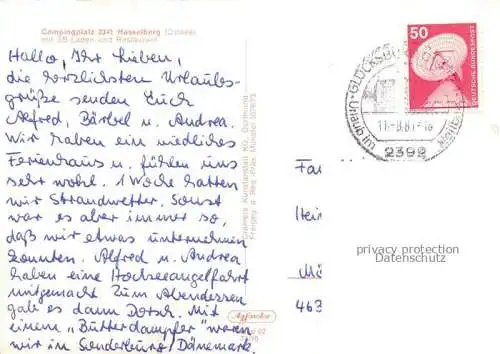 Campingplatz 2341 Hasselberg (Ostsee)
mit SB-Laden und Restaurant
Hallo, Ihr Lieben,
die herzlichsten Urlaubs-
grüße senden Euch
Alfred, Bärbel u. Andrea.
Wir haben ein niedliches
Ferienhaus u. fühlen uns
sehr wohl. 1 Woche hatten
wir Strandwetter. Sonst
war es aber immer so,
daß wir etwas unternehmen
konnten. Alfred u. Andrea
haben eine Hochseeangelfahrt
mitgemacht. Zum Abendessen
gab es dann Dorsch. Mit
einem "Butterdampfer" waren
wir in Sonderburg, Dänemark.
Cramers Kunstanstalt KG, Dortmund
50
DEUTSCHE BUNDESPOST
GLÜCKSBU
2392
Fa
Hei
privacy protection
Datenschutz
Mü
463